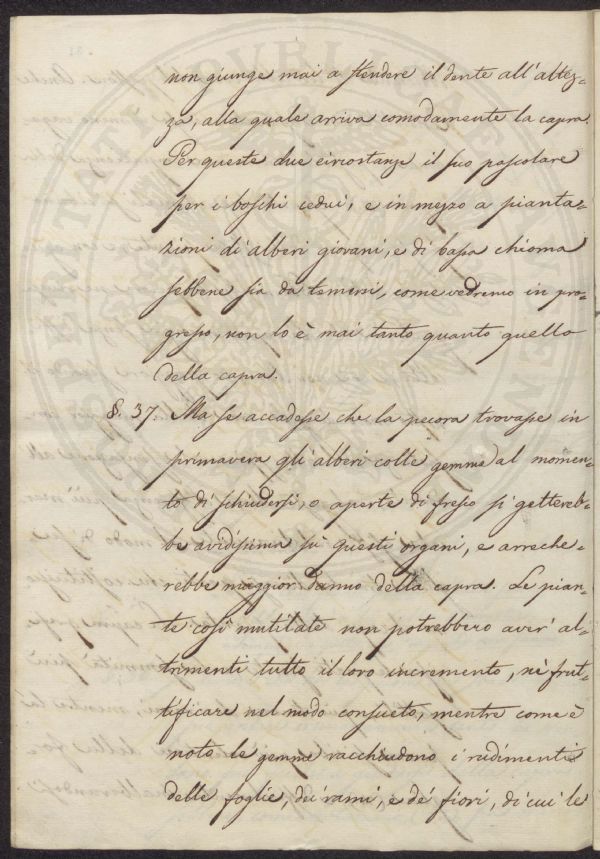 non giunge mai a stendere il dente all'altez-
za, alla quale arriva comodamente la capra.
Per queste due circostanze il suo pascolare
per i boschi cedui, e in mezzo a pianta-
zioni di alberi giovani, e di bassa chioma
sebbene sia da temersi, come vedremo in pro-
gresso, non lo è mai tanto quanto quello
della capra.
§. 37. Ma se accadesse che la pecora trovasse in
primavera gli alberi colle gemme al momen-
to di schiudersi, o aperte di fresco si getereb-
be avidissima su questi organi, e arreche-
rebbe maggior danno della capra. Le pian-
te così mutilate non potrebbero aver' al-
trimenti tutto il loro incremento, nè frut-
tificare nel modo consueto, mentre come è
noto le gemme racchiudono i rudimenti
delle foglie, dei rami, e de' fiori, di cui le